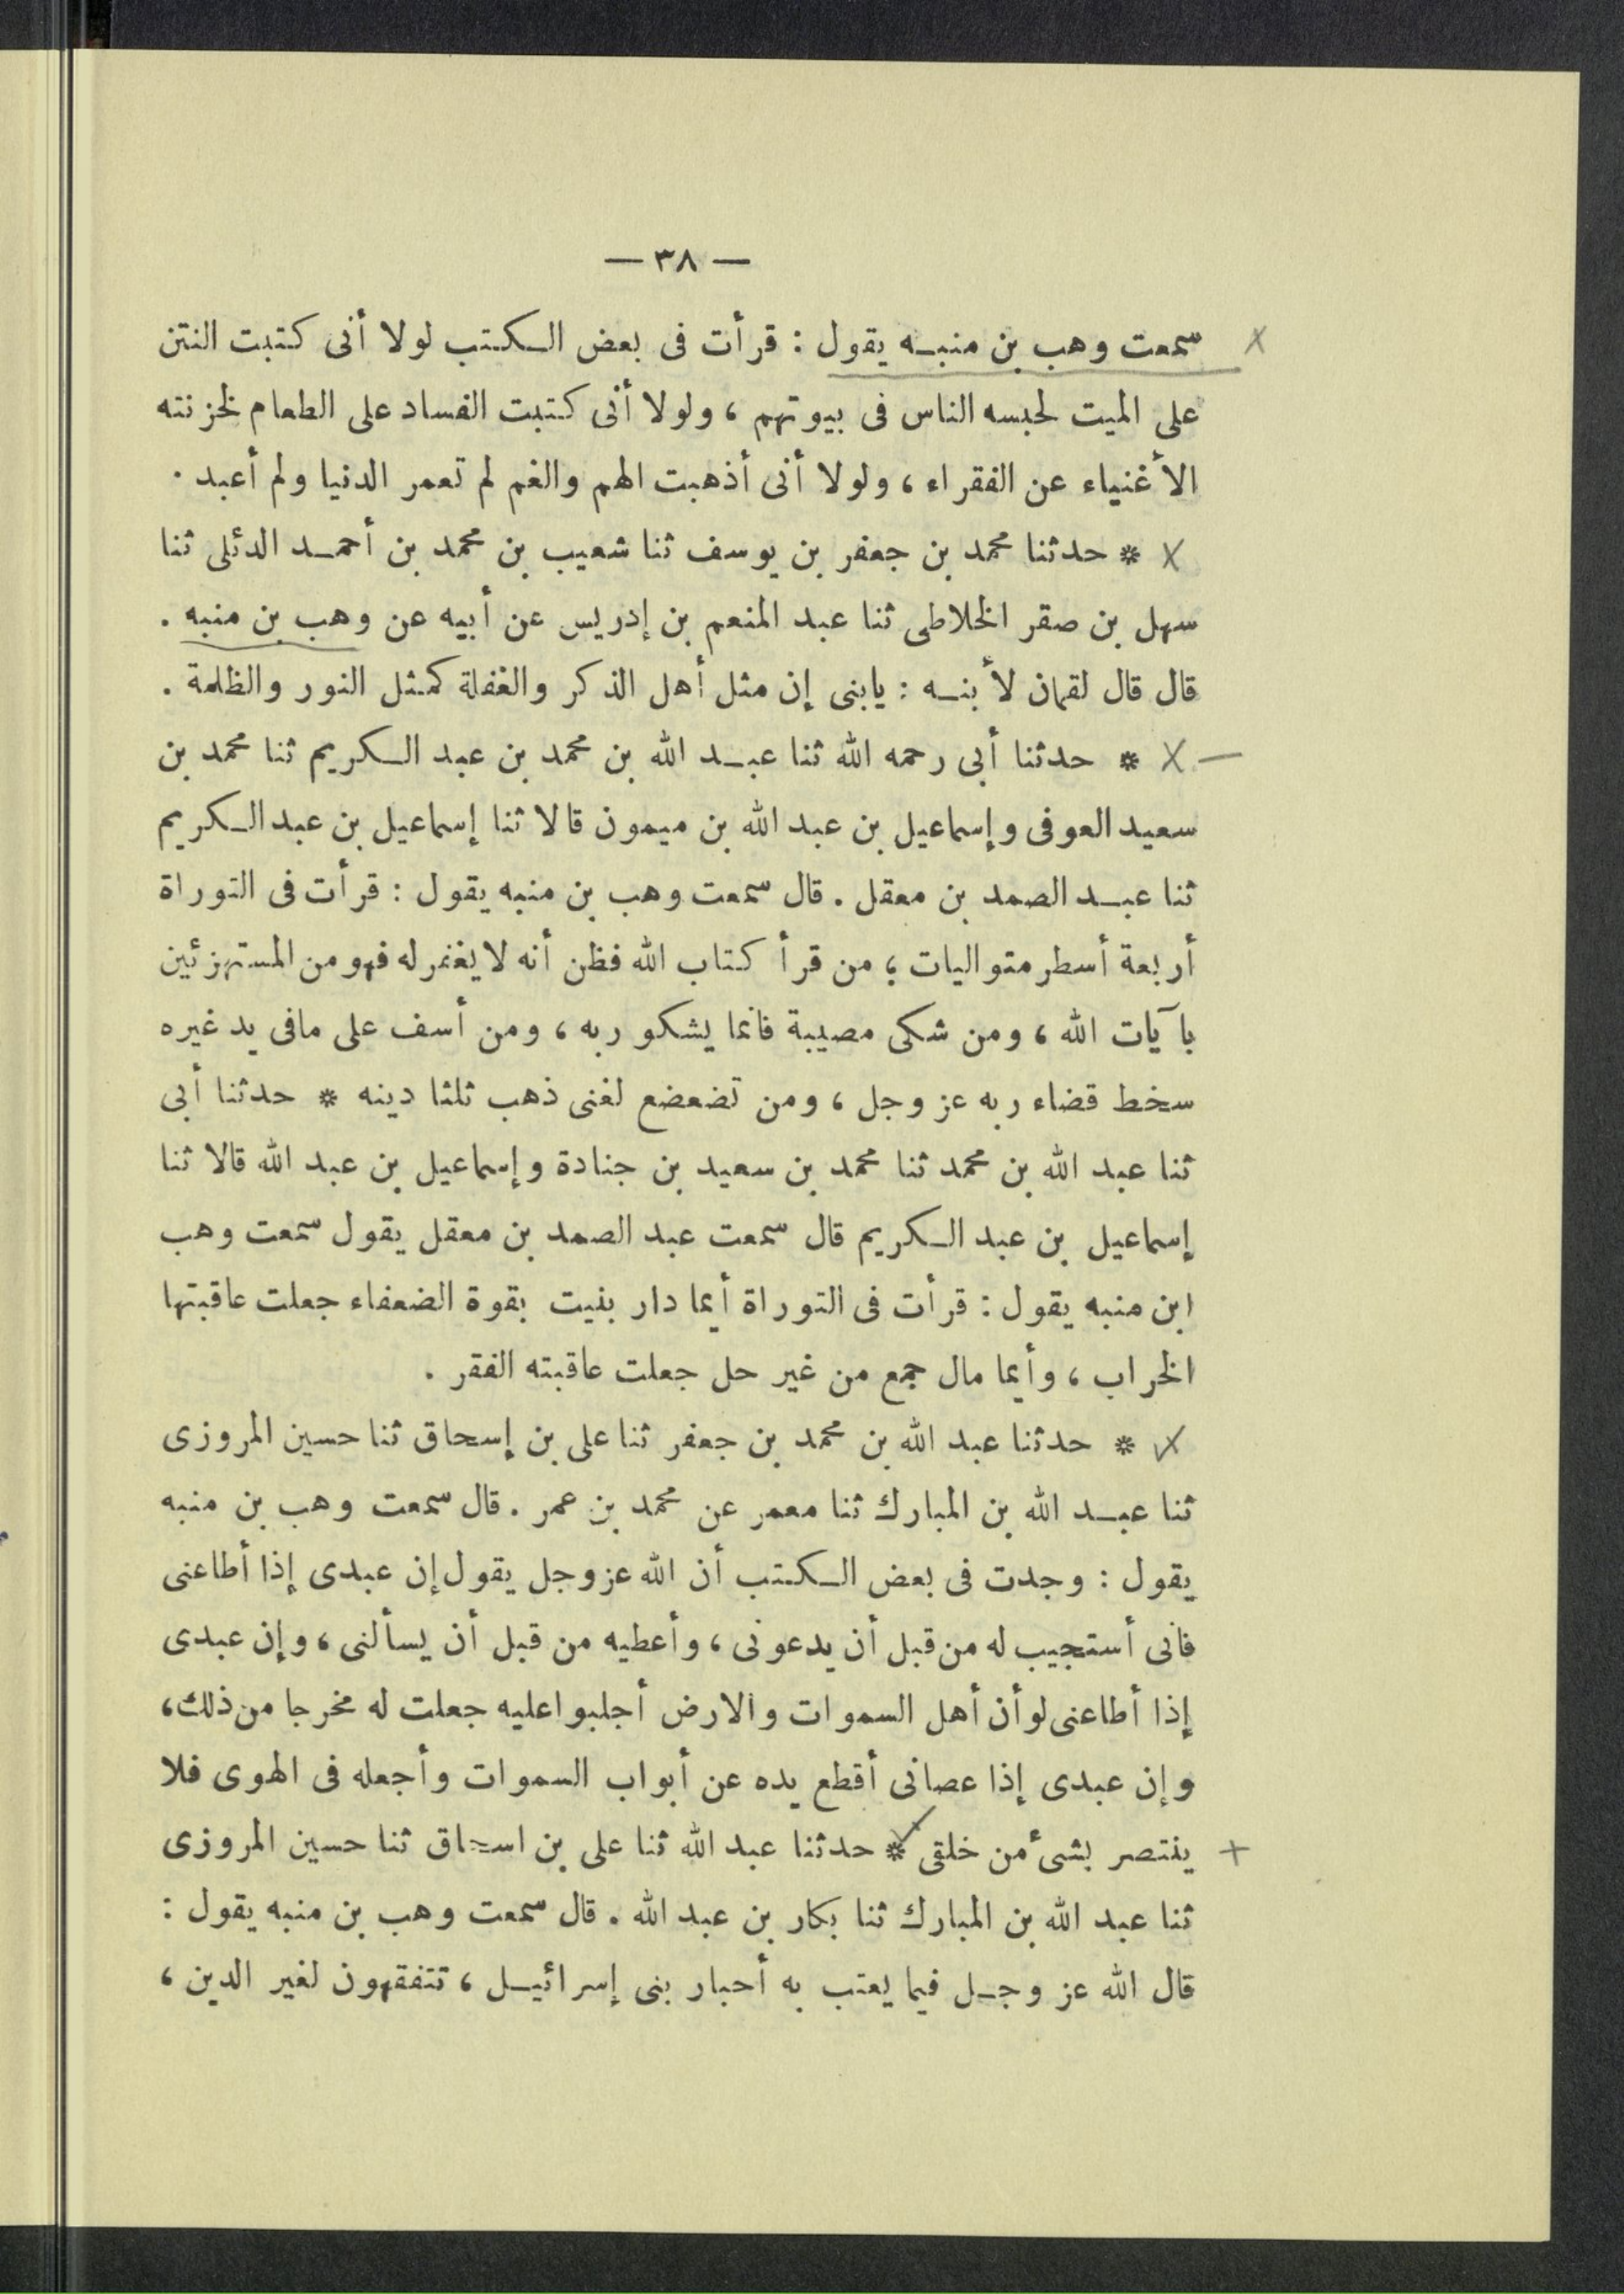 — ٣٨ —
سمعت وهب بن منبه يقول : قرأت فى بعض الكتب لولا أنى كتبت النتن
على الميت لحبسه الناس فى بيوتهم ، ولولا أنى كتبت الفساد على الطعام لخزنته
الأغنياء عن الفقراء ، ولولا أنى أذهبت الهم والغم لم تعمر الدنيا ولم أعبد .
* حدثنا محمد بن جعفر بن يوسف ثنا شعيب بن محمد بن أحمد الدئلى ثنا
سهل بن صقر الخلاطى ثنا عبد المنعم بن إدريس عن أبيه عن وهب بن منبه .
قال قال لقمان لأبنه : يابنى إن مثل أهل الذكر والغفلة كمثل النور والظلمة .
* حدثنا أبى رحمه الله ثنا عبد الله بن محمد بن عبد الكريم ثنا محمد بن
سعيد العوفى وإسماعيل بن عبد الله بن ميمون قالا ثنا إسماعيل بن عبد الكريم
ثنا عبد الصمد بن معقل . قال سمعت وهب بن منبه يقول : قرأت فى التوراة
أربعة أسطر متواليات ؛ من قرأ كتاب الله فظن أنه لا يغفر له فهو من المستهزئين
بآيات الله ، ومن شكى مصيبة فانما يشكو ربه ، ومن أسف على مافى يد غيره
سخط قضاء ربه عز وجل ، ومن تضعضع لغنى ذهب ثلثا دينه * حدثنا أبى
ثنا عبد الله بن محمد ثنا محمد بن سعيد بن جنادة وإسماعيل بن عبد الله قالا ثنا
إسماعيل بن عبد الكريم قال سمعت عبد الصمد بن معقل يقول سمعت وهب
ابن منبه يقول : قرأت فى التوراة أيما دار بنيت بقوة الضعفاء جعلت عاقبتها
الخراب ، وأيما مال جمع من غير حل جعلت عاقبته الفقر .
* حدثنا عبد الله بن محمد بن جعفر ثنا على بن إسحاق ثنا حسين المروزى
ثنا عبد الله بن المبارك ثنا معمر عن محمد بن عمر . قال سمعت وهب بن منبه
يقول : وجدت فى بعض الكتب أن الله عز وجل يقول إن عبدى إذا أطاعنى
فانى أستجيب له من قبل أن يدعونى ، وأعطيه من قبل أن يسألنى ، وإن عبدى
إذا أطاعنى لو أن أهل السموات والارض أجلبوا عليه جعلت له مخرجا من ذلك ،
وإن عبدى إذا عصانى أقطع يده عن أبواب السموات وأجعله فى الهوى فلا
ينتصر بشىء من خلقى * حدثنا عبد الله ثنا على بن اسحاق ثنا حسين المروزى
ثنا عبد الله بن المبارك ثنا بكار بن عبد الله . قال سمعت وهب بن منبه يقول :
قال الله عز وجل فيما يعتب به أحبار بنى إسرائيل ، تتفقهون لغير الدين ،